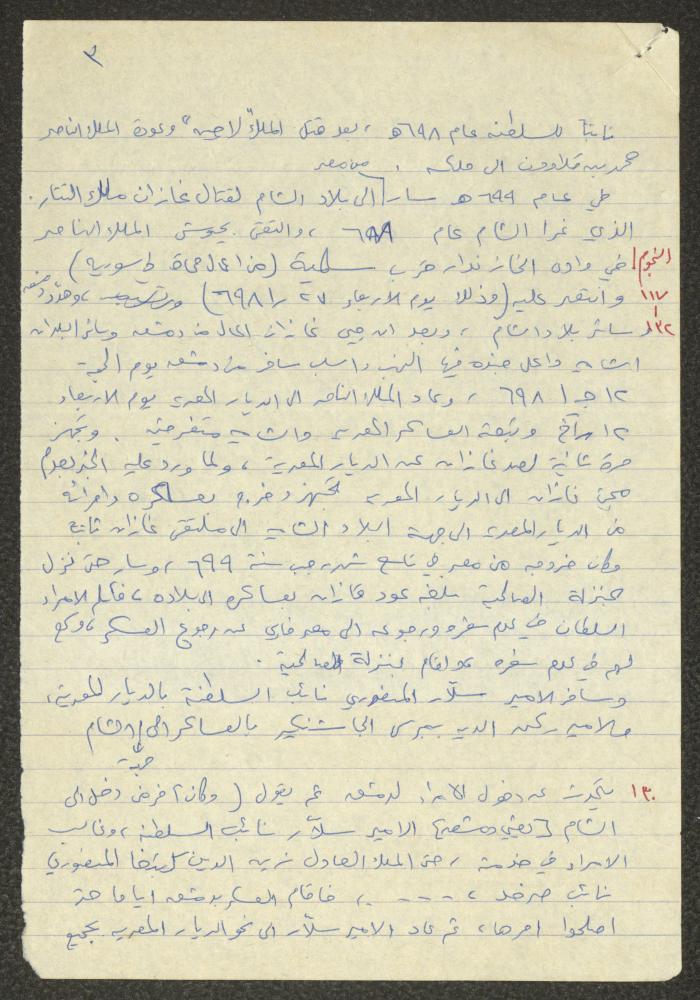 ٣
نائباً للسلطنه عام ٦٩٨هـ ، بعد قتل الملك "لاجين" وعودة الملك الناصر
محمد بن قلاوون الى ملكه . من مصر
في عام ٦٩٩ هـ سار الى بلاد الشام لقتال غازان ملك التتار .
الذي غزا الشام عام ٦٩٩ ، والتقى بجيوش الملك الناصر
النجوم في وادي الخازندار قرب سلمية (من اعمال حماة في سورية)
١١٧ وانتصر عليه (وذلك يوم الاربعاء ٢٧ را ٦٩٨)
١٢٢ سائر بلاد الشام ، وبعد ان جبى غازان المال من دمشق وسائر البلدان
الشامية واعمل جنده فيها النهب والسلب سافر من دمشق يوم الجمعة
١٢ جـ١ ٦٩٨ ، وعاد الملك الناصر الى الديار المصرية يوم الاربعاء
١٢ وتبعته العساكر المصرية والشامية متفرقين . وتجهز
مرة ثانية لصد غازان عن الديار المصرية ، ولما ورد عليه الخبر بعدم
مجيء غازان الى الديار المصرية تجهز وخرج بعساكره وامرائه
من الديار المصرية الى جهة البلاد الشامية الى ملتقى غازان ثانية
وكان خروجه من مصر في تاسع شهر رجب سنة ٦٩٩ ، وسار حتى نزل
بمنزلة الصالحية بلغه عود قازان بعساكره الى بلاده ، فكلم الامراء
السلطان في عدم سفره ورجوعه الى مصر فابى عن رجوع العسكر ، وسمع
لهم في عدم سفره واقام بمنزلة الصالحية .
وسافر الامير سلّار المنصوري نائب السلطنة بالديار المصرية ،
والامير ركن الدين بيبرس الجاشنكير بالعساكر الى الشام
١٣٠ يتحدث عن دخول الامراء لدمشق ثم يقول ( وكان آخر من دخل الى
الشام [يعني دمشق] الامير سلّار نائب السلطنة ، وغالب
الامراء في خدمته ، حتى الملك العادل زين الدين كتبغا المنصوري
نائب صرخد ، - - - - ، فاقام العسكر بدمشق اياما حتى
اصلحوا امرها ، ثم عاد الامير سلّار الى نحو الديار المصريه بجميع